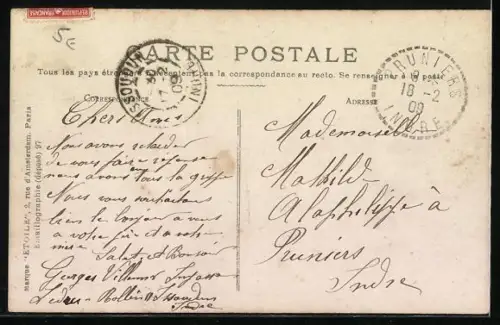 CARTE POSTALE
Tous les pays étrangers n'acceptent pas la correspondance au recto. Se renseigner à la poste
CORRESPONDANCE
ADRESSE
ISSOUDUN
INDRE
17-2
09
PRUNIERS
18 -2
09
INDRE
Chers Amis
Nous avons retardé
de vous faire réponse
nous avons tous la grippe
Nous vous souhaitons
bien le bonjour a vous
a votre
Salut et Bonsoir
Georges Villemer
Ledru-Rollin Issoudun
Indre
Mademoiselle
Mathilde
Alaphilippe à
Pruniers
Indre
Marque "ETOILE", 2, rue d'Amsterdam, Paris
Emaillographie (déposé) 97